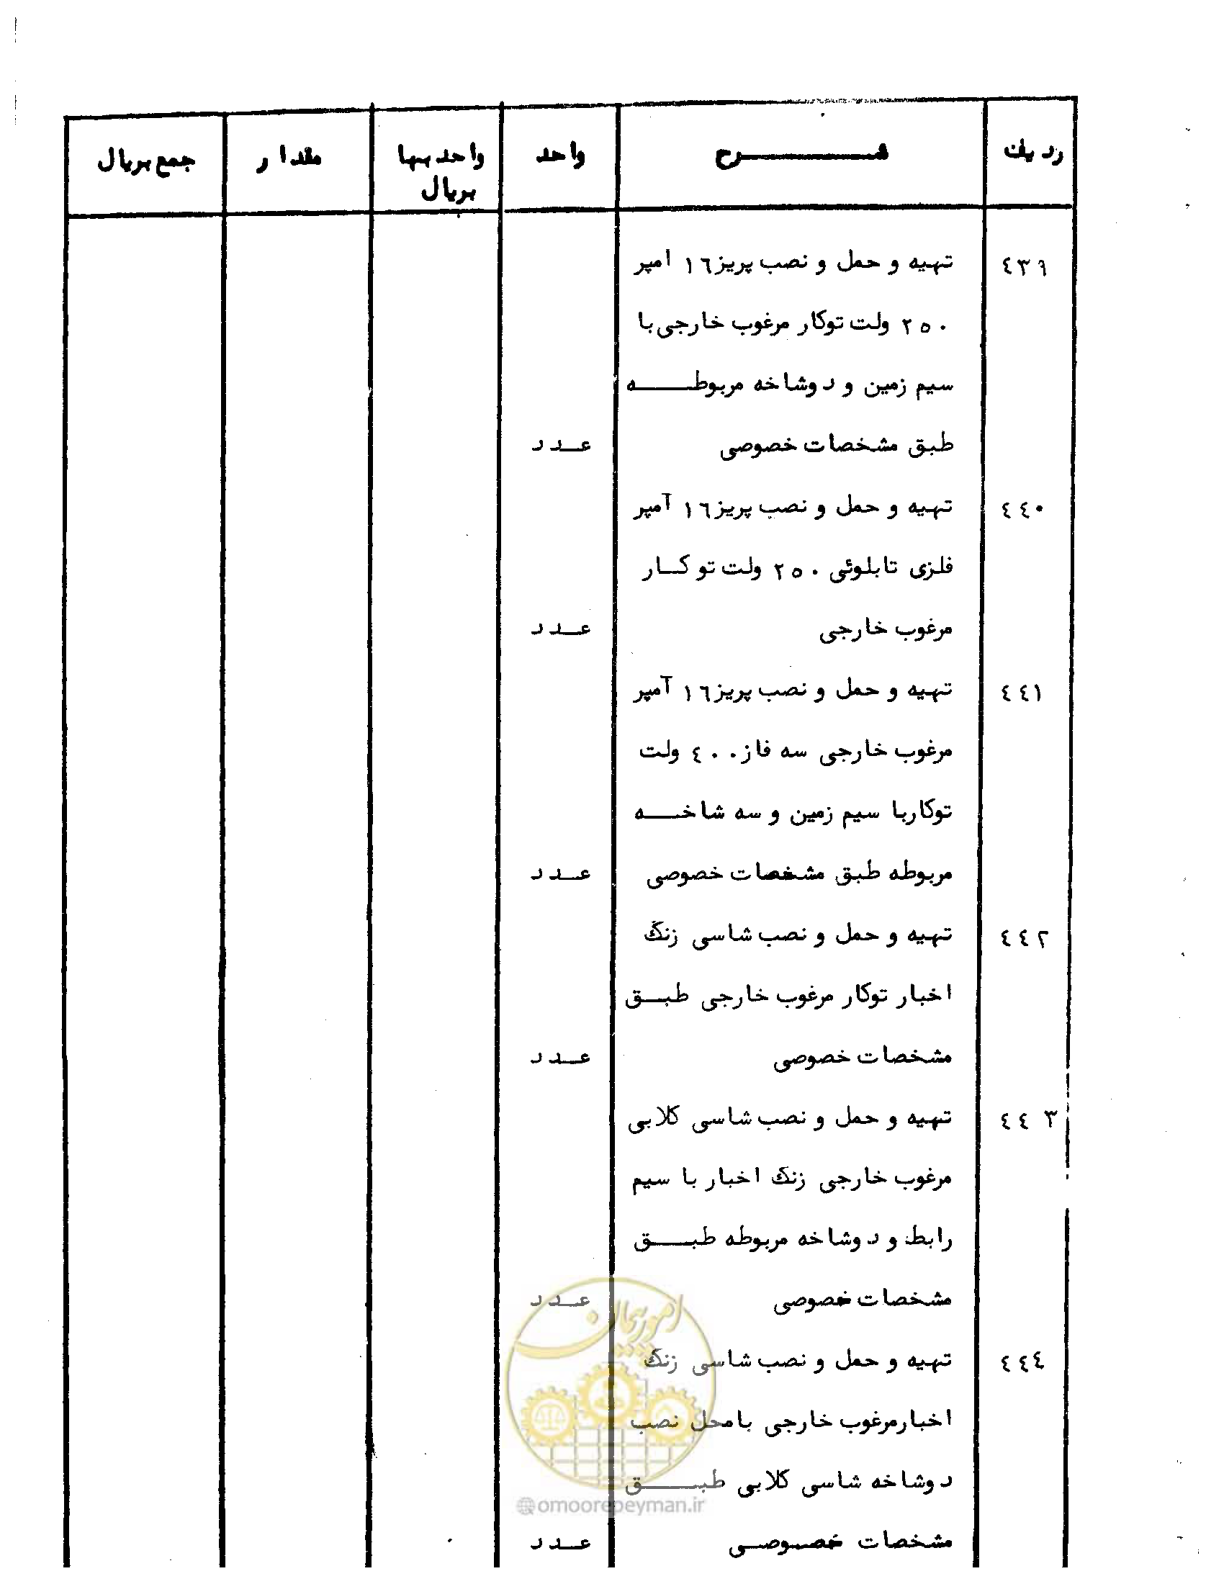 ردیف شرح واحد واحد بها مقدار جمع بریال
بریال
٤٣٩ تهیه و حمل و نصب پریز ١٦ امپر
٢٥٠ ولت توکار مرغوب خارجی با
سیم زمین و دوشاخه مربوطه
طبق مشخصات خصوصی عدد
٤٤٠ تهیه و حمل و نصب پریز ١٦ آمپر
فلزی تابلوئی ٢٥٠ ولت توکار
مرغوب خارجی عدد
٤٤١ تهیه و حمل و نصب پریز ١٦ آمپر
مرغوب خارجی سه فاز ٤٠٠ ولت
توکار با سیم زمین و سه شاخه
مربوطه طبق مشخصات خصوصی عدد
٤٤٢ تهیه و حمل و نصب شاسی زنگ
اخبار توکار مرغوب خارجی طبق
مشخصات خصوصی عدد
٤٤٣ تهیه و حمل و نصب شاسی کلابی
مرغوب خارجی زنگ اخبار با سیم
رابط و دوشاخه مربوطه طبق
مشخصات خصوصی عدد
امور پیمان
٤٤٤ تهیه و حمل و نصب شاسی زنگ
اخبار مرغوب خارجی با محل نصب
دوشاخه شاسی کلابی طبق
omoorepeyman.ir
مشخصات خصوصی عدد